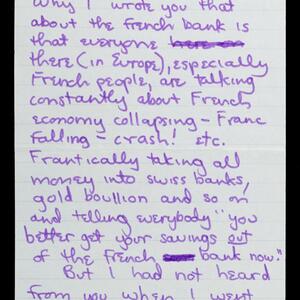 Why I wrote you that
about the French bank is
that everyone
there (in Europe), especially
French people, are talking
constantly about French
economy collapsing - Franc
Falling - crash! etc.
Frantically taking all
money into swiss banks,
gold boullion and so on
and telling everybody "you
better get your savings out
of the French bank now."
But I had not heard
from you when I went